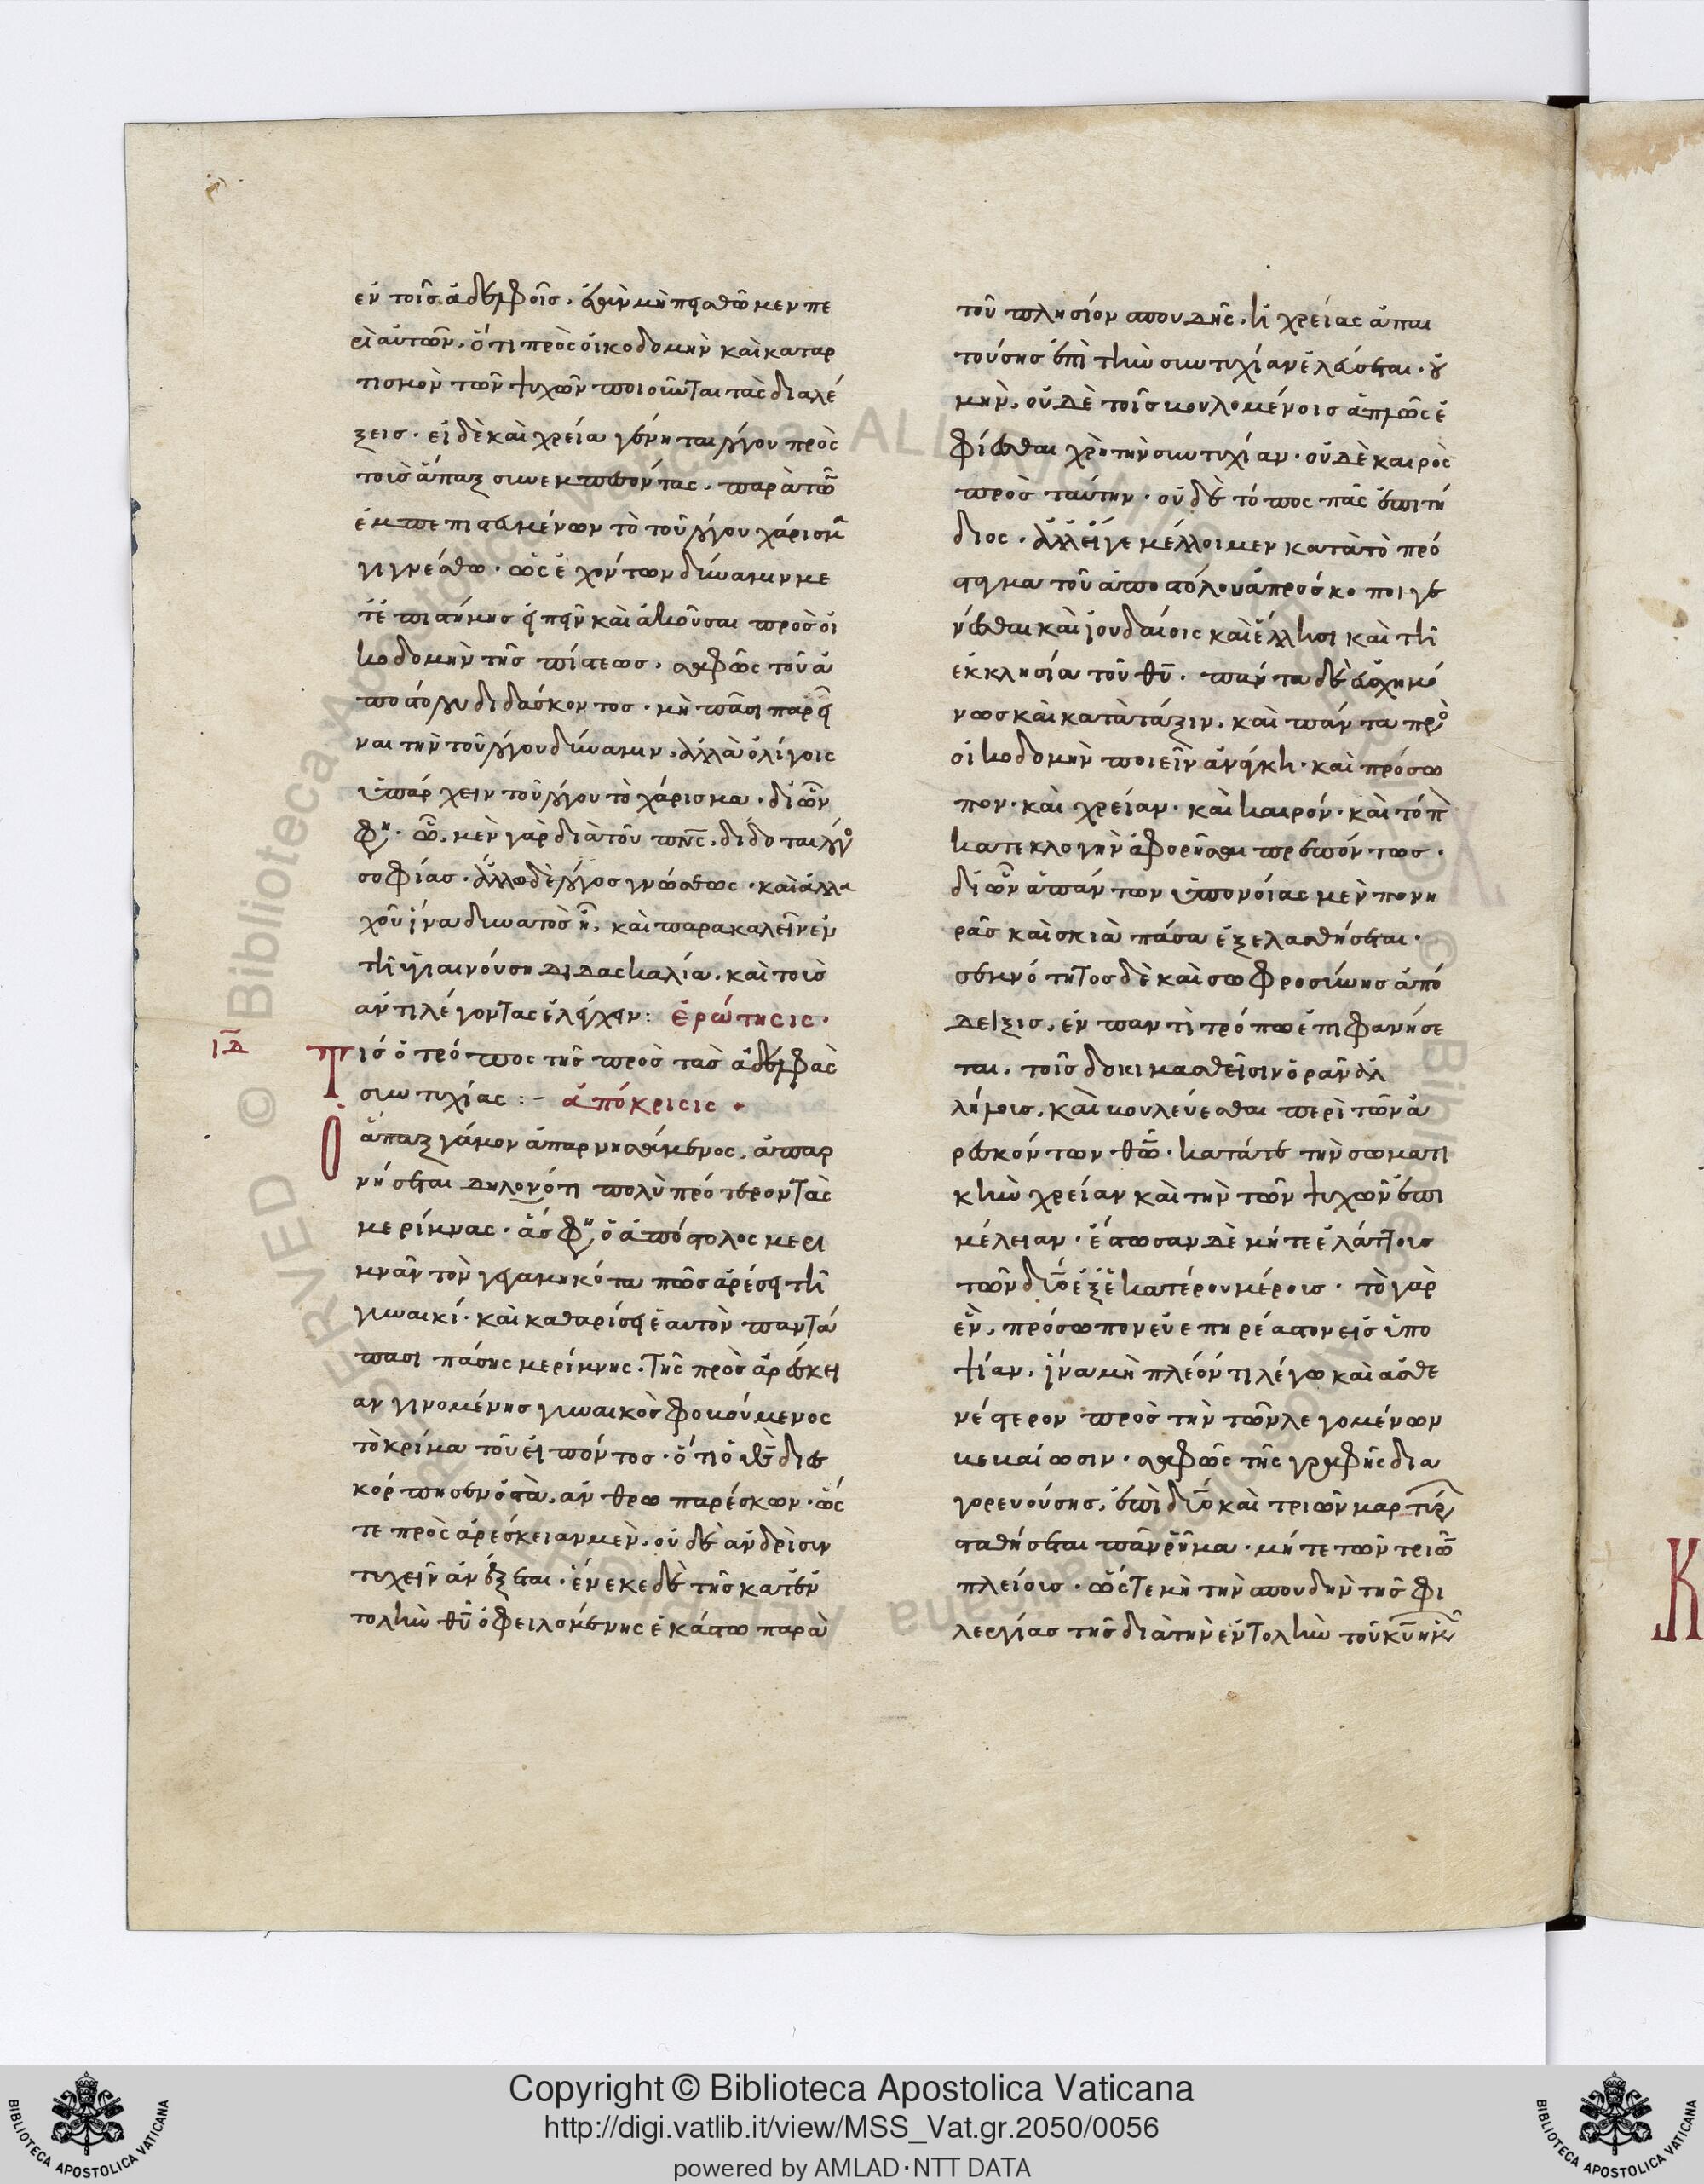 ἐν τοῖς ἀδελφοῖς. ἐὰν μὴ πεισθῶμεν πε
ρὶ αὐτῶν, ὅτι πρὸς οἰκοδομὴν καὶ καταρ
τισμὸν τῶν ψυχῶν ποιοῦνται τὰς διαλέ
ξεις. εἰ δὲ καὶ χρεία γένηται λόγου πρὸς
τοὺς ἅπαξ συνεμπεσόντας, παρὰ τῶν
ἐμπεπιστευμένων τὸ τοῦ λόγου χάρισμα
γιγνέσθω. ὡς ἐχόντων δύναμιν με
τ' ἐπιστήμης εἰπεῖν καὶ ἀκοῦσαι πρὸς οἰ
κοδομὴν τῆς πίστεως. σαφῶς τοῦ ἀ
ποστόλου διδάσκοντος. μὴ πᾶσι παρεῖ
ναι τὴν τοῦ λόγου δύναμιν, ἀλλὰ ὀλίγοις
ὑπάρχειν τοῦ λόγου τὸ χάρισμα. δι' ὧν
φη. ᾧ μὲν γὰρ διὰ τοῦ πνς, δίδοται λόγος
σοφίας. ἄλλω δὲ λόγος γνώσεως. καὶ ἀλλα
χοῦ ἵνα δυνατὸς ῇ, καὶ παρακαλεῖν ἐν
τῆ ὑγιαινούση διδασκαλία, καὶ τοὺς
ἀντιλέγοντας ἐλέγχειν: ἐρώτησις.
ιδ Τίς ὁ τρόπος τῆς πρὸς τὰς ἀδελφὰς
συντυχίας:– ἀπόκρισις
Ὁ ἅπαξ γάμον ἀπαρνησάμενος, ἀπαρ
νήσεται δηλονότι πολὺ πρότερον τὰς
μερίμνας. ἅς φη ὁ ἀπόστολος μερι
μνᾶν τὸν γεγαμηκότα πῶς ἀρέσει τῆ
γυναικί. καὶ καθαρίσει ἑαυτὸν παντά
πασι πάσης μερίμνης. τῆς πρὸς ἀρέσκει
αν γινομένης γυναικὸς φοβούμενος
τὸ κρίμα τοῦ εἰπόντος. ὅτι ὁ θς διε
σκόρπισεν ὀστᾶ, ἀνθρωπαρέσκων. ὥς
τε πρὸς ἀρέσκειαν μὲν, οὐδὲ ἀνδρὶ συν
τυχεῖν ἀνέξεται. ἕνεκε δὲ τῆς κατ' ἐν
τολὴν θυ ὀφειλομένης ἑκάστω παρὰ
τοῦ πλησίον σπουδῆς, ἢ χρείας ἀπαι
τούσης ἐπὶ τὴν συντυχίαν ἐλεύσεται. οὐ
μὴν, οὐδὲ τοῖς βουλομένοις ἁπλῶς ἐ
φίεσθαι χρὴ τὴν συντυχίαν. οὐδὲ καιρὸς
πρὸς ταύτην. οὐδὲ τόπος πᾶς ἐπιτή
διος. ἀλλ' εἴγε μέλλοιμεν κατὰ τὸ πρό
σταγμα τοῦ ἀποστόλου ἀπρόσκοποι γε
νέσθαι καὶ ἰουδαίοις καὶ ἕλλησι καὶ τῆ
ἐκκλησία τοῦ θυ. πάντα δὲ εὐσχημό
νως καὶ κατὰ τάξιν, καὶ πάντα πρὸς
οἰκοδομὴν ποιεῖν ἀνάγκη. καὶ πρόσω
πον. καὶ χρείαν. καὶ καιρόν. καὶ τόπον
κατ' ἐκλογὴν ἀφορῆσθαι πρεπόντως.
δι' ὧν ἁπάντων ὑπονοίας μὲν πονη
ρᾶς καὶ σκιὰ πᾶσα ἐξελασθήσεται.
σεμνότητος δὲ καὶ σωφροσύνης ἀπό
δειξις, ἐν παντὶ τρόπω ἐπιφανήσε
ται, τοῖς δοκιμασθεῖσιν ὁρᾶν ἀλ
λήλοις, καὶ βουλεύεσθαι περὶ τῶν ἀ
ρεσκόντων θω. κατά τε τὴν σωματι
κὴν χρείαν καὶ τὴν τῶν ψυχῶν ἐπι
μέλειαν. ἔστωσαν δὲ μήτε ἐλάττους
τῶν δύο ἐξ ἑκατέρου μέρους. τὸ γὰρ
ἓν, πρόσωπον εὐεπηρέαστον εἰς ὑπο
ψίαν, ἵνα μὴ πλέόν τι λέγω καὶ ἀσθε
νέστερον πρὸς τὴν τῶν λεγομένων
βεβαίωσιν. σαφῶς τῆς γραφῆς δια
γορευούσης, ἐπὶ δύο καὶ τριῶν μαρτύρων
σταθήσεται πᾶν ῥῆμα. μήτε τῶν τριῶν
πλείους. ὥστε μὴ τὴν σπουδὴν τῆς φι
λεργίας τῆς διὰ τὴν ἐντολὴν τοῦ κυ ἡμῶν
Copyright © Biblioteca Apostolica Vaticana
http://digi.vatlib.it/view/MSS_Vat.gr.2050/0056
powered by AMLAD·NTT DATA